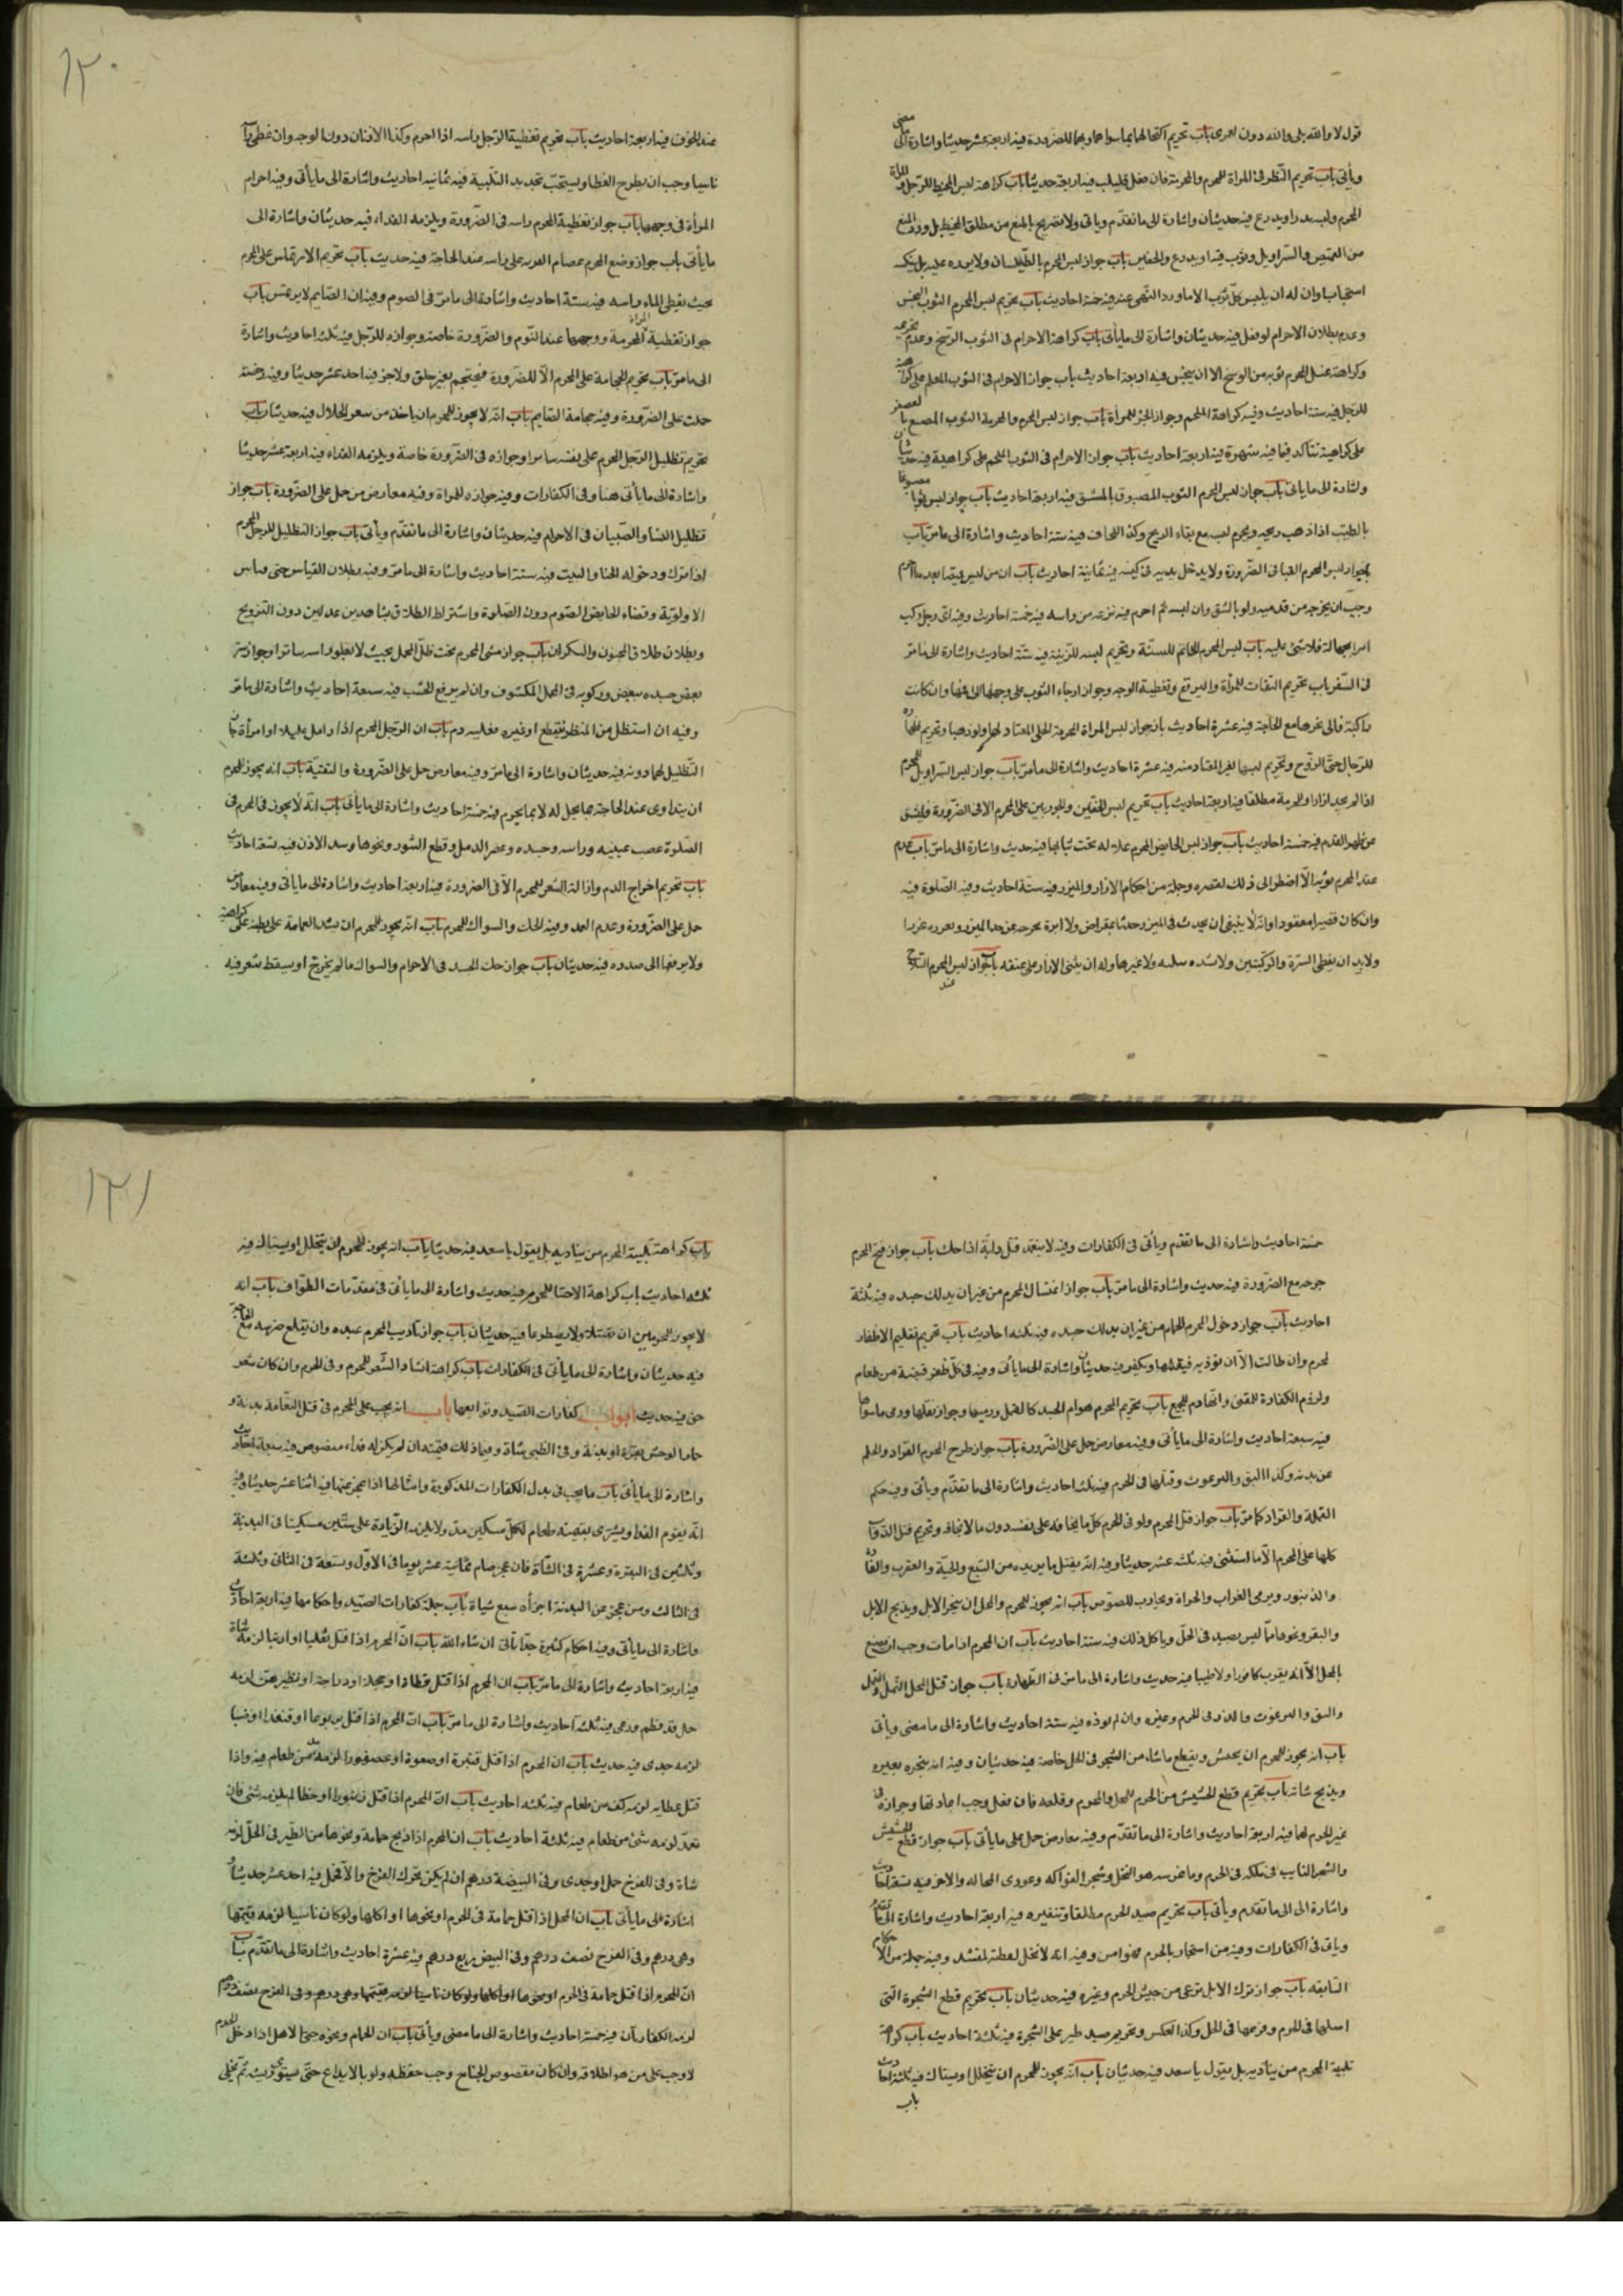 قوله لا والله بلى والله دون لعمرى باب تحريم اكتحالهما بما سواهما وبهما للضرورة فيه اربعة عشر حديثا واشارة الى معنى
ويأتى باب تحريم النظر فى المراة للمحرم والمحرمة فان فعل فليلب فيه اربعة حديثا باب كراهة لبس المخيط للرجل المراة
المحرم ولبسه دراويدرع فيه حديثان واشارة الى ما تقدم وياتى ولا تصريح بالمنع من مطلق المخيط بل ورد المنع
من القميص والسراويل وثوب فيه ازرار ويدرع والخفين باب جواز لبس المحرم بالطيلسان ولا يزره عليه بل ينكسه
استحبابا وان له ان يلبس كل ثوب الا ما ورد النهى عنه فيه خمسة احاديث باب تحريم لبس المحرم الثوب النجس
وعدم بطلان الاحرام لو فعل فيه حديثان واشارة الى ما يأتى باب كراهة الاحرام فى الثوب الوسخ وعدم تحريمه
وكراهة غسل المحرم ثوبه من الوسخ الا ان ينجس فيه اربعة احاديث باب جواز الاحرام فى الثوب المعلم على كراهة
للرجل فيه ستة احاديث وفيه كراهة الملحم وجواز الخز للمرأة باب جواز لبس المحرم والمحرمة الثوب المصبوغ بالعصفر
على كراهية تتأكد فيما فيه شهرة فيه اربعة احاديث باب جواز الاحرام فى الثوب الملحم على كراهية فيه حديثان
واشارة الى ما ياتى باب جواز لبس المحرم الثوب المصبوغ بالمشق فيه اربعة احاديث باب جواز لبس ثوبا مصبوغا
بالطيب اذا ذهب ريحه ويحرم لبسه مع بقاء الريح وكذا اللحاف فيه ستة احاديث واشارة الى ما مر باب
جواز لبس المحرم القبا فى الضرورة ولا يدخل يديه فى كميه فيه ثمانية احاديث باب ان من لبس قميصا بعد ما احرم
وجب ان يخرجه من قدميه ولو بالشق وان لبسه ثم احرم فيه نزعه من راسه فيه خمسة احاديث وفيه اى رجل ركب
امرا بجهالة فلا شئ عليه باب لبس المحرم الخاتم للسنة وتحريم لبسه للزينة فيه ستة احاديث واشارة الى ما مر
فى السفر باب تحريم النقاب للمرأة والبرقع وتغطية الوجه وجواز ارخاء الثوب على وجهها الى فمها وان كانت
راكبة فالى نحرها مع الحاجة فيه عشرة احاديث باب جواز لبس المراة المحرمة الحلى المعتاد لها ولو ذهبا وتحريم اظهاره
للرجال حتى الزوج وتحريم لبسها لغير المعتاد منه فيه عشرة احاديث واشارة الى ما مر باب جواز لبس السراويل للمحرم
اذا لم يجد ازارا والمحرمة مطلقا فيه اربعة احاديث باب تحريم لبس الخفين والجوربين على المحرم الا فى الضرورة فليشق
عن ظهر القدم فيه خمسة احاديث باب جواز لبس الحايض المحرم غلالة تحت ثيابها فيه حديث واشارة الى ما مر باب عدم
عقد المحرم ثوبه الا اضطر الى ذلك لقصره وجملة من احكام الازار والميزر فيه ستة احاديث وفيه الصلوة فيه
وان كان قصيرا معقودا وانه لا ينبغى ان يحدث فى الميزر حدثا بمقراض ولا ابرة يخرجه عن حد الميزر ويغرزه غرزا
ولا بد ان يغطى السرة والركبتين ولا يشده بتكة ولا غيرها وله ان يثنى الازار على عنقه باب جواز لبس المحرم السلاح
عند
١٢٠
عند الخوف فيه اربعة احاديث باب تحريم تغطية الرجل راسه اذا احرم وكذا الاذنان دون الوجه وان غطى راسه
ناسيا وجب ان يطرح الغطا ويستحب تجديد التلبية فيه ثمانية احاديث واشارة الى ما يأتى وفيه احرام
المرأة فى وجهها باب جواز تغطية المحرم راسه فى الضرورة ويلزمه الفداء فيه حديثان واشارة الى
ما يأتى باب جواز وضع المحرم عصام القربة على راسه عند الحاجة فيه حديث باب تحريم الارتماس على المحرم
بحيث يغطى الماء راسه فيه ستة احاديث واشارة الى ما مر فى الصوم وفيه ان الصايم لا يرتمس باب
جواز تغطية المراة المحرمة ووجهها عند النوم والضرورة خاصة وجوازه للرجل فيه ثلثة احاديث واشارة
الى ما مر باب تحريم الحجامة على المحرم الا للضرورة فيحتجم بغير حلق ولا جز فيه احد عشر حديثا وفيه رخصة
حملت على الضرورة وفيه حجامة الصايم باب انه لا يجوز للمحرم ان ياخذ من شعر الحلال فيه حديثان باب
تحريم تظليل الرجل المحرم على نفسه سايرا وجوازه فى الضرورة خاصة ويلزمه الفداء فيه اربعة عشر حديثا
واشارة الى ما يأتى هنا وفى الكفارات وفيه جوازه للمراة وفيه معارض من حمل على الضرورة باب جواز
تظليل النسا والصبيان فى الاحرام فيه حديثان واشارة الى ما تقدم ويأتى باب جواز التظليل للرجل المحرم
اذا نزل ودخوله الخبا والبيت فيه ستة احاديث واشارة الى ما مر وفيه بطلان القياس حتى قياس
الاولوية وقضاء الحايض الصوم دون الصلوة واشتراط الطلاق بشاهدين عدلين دون التزويج
وبطلان طلاق المجنون والسكران باب جواز مشى المحرم تحت ظل المحمل بحيث لا يعلو راسه ساترا وجواز ستر
بعض جسده ببعض وركوبه فى المحمل المكشوف وان لم يرفع الخشب فيه سبعة احاديث واشارة الى ما مر
وفيه ان استظل من المطر بنطع او غيره فعليه دم باب ان الرجل المحرم اذا زامل عليلا او امرأة جاز
التظليل لهما دونه فيه حديثان واشارة الى ما مر وفيه معارض حمل على الضرورة والتقية باب انه يجوز للمحرم
ان يتداوى عند الحاجة بما يحل له لا بما يحرم فيه خمسة احاديث واشارة الى ما يأتى باب انه لا يجوز فى المحرم فى
الصلوة عصب عينيه وراسه وجسده وعصر الدمل وقطع البثور ونحوها وسد الاذن فيه تسعة احاديث
باب تحريم اخراج الدم وازالة الشعر للمحرم الا فى الضرورة فيه اربعة احاديث واشارة الى ما ياتى وفيه معارض
حمل على الضرورة وعدم العمد وفيه الحك والسواك للمحرم باب انه يجوز للمحرم ان يشد العمامة على بطنه على كراهية
ولا يرفعها الى صدره فيه حديثان باب جواز حك الجسد فى الاحرام والسواك ما لم يخرج او يسقط شعر فيه
خمسة احاديث واشارة الى ما تقدم ويأتى فى الكفارات وفيه لا يتعمد قتل دابة اذا حك باب جواز فتح المحرم
جرحه مع الضرورة فيه حديث واشارة الى ما مر باب جواز اغتسال المحرم من غير ان يدلك جسده فيه ثلثة
احاديث باب جواز دخول المحرم الحمام من غير ان يدلك جسده فيه ثلثة احاديث باب تحريم تقليم الاظفار
لمحرم وان طالت الا ان تؤذيه فيقلمها ويكفر فيه حديثان واشارة الى ما يأتى وفيه فى كل ظفر قبضة من طعام
ولزوم الكفارة للمفتى وانها دم للجميع باب تحريم المحرم هوام الجسد كالقمل ورميها وجواز نقلها ورمى ما سواها
فيه سبعة احاديث واشارة الى ما يأتى وفيه معارض حمل على الضرورة باب جواز طرح المحرم القراد والحلم
عن بدنه وكذا البق والبرغوث وقتلها فى الحرم فيه ثلث احاديث واشارة الى ما تقدم ويأتى وفيه حكم
القملة والقراد كما مر باب جواز قتل المحرم ولو فى الحرم كل ما يخافه على نفسه دون ما لا يخافه وتحريم قتل الدواب
كلها على المحرم الا ما استثنى فيه ثلثة عشر حديثا وفيه انه يقتل ما يريده من السبع والحية والعقرب والفأرة
والذنبور ويرمى الغراب والحداة ويحارب للصوص باب انه يجوز للمحرم والمحل ان ينحر الابل ويذبح الابل
والبقر ونحوهما مما ليس بصيد فى الحل وياكل ذلك فيه ستة احاديث باب ان المحرم اذا مات وجب ان يصنع
بالمحل الا انه يقرب كافورا ولا طيبا فيه حديث واشارة الى ما مر فى الطهارة باب جواز قتل المحل النمل والقمل
والبق والبرغوث والذر فى الحرم وغيره وان لم يوذه فيه ستة احاديث واشارة الى ما مضى ويأتى
باب انه يجوز للمحرم ان يحتش ويقطع ما شاء من الشجر فى الحل خاصة فيه حديثان وفيه انه ينحره بعيره
ويذبح شاته باب تحريم قطع الحشيش من الحرم للمحل والمحرم وقلعه فان فعل وجب اعادتها وجوازه فى
غير الحرم لهما فيه اربعة احاديث واشارة الى ما تقدم وفيه معارض حمل على ما يأتى باب جواز قطع الحشيش
والشجر النابت فى ملكه فى الحرم وما غرسه هو النخل وشجر الفواكه وعودى المحالة والاذخر فيه تسعة احاديث
واشارة الى الى ما تقدم ويأتى باب تحريم صيد الحرم مطلقا وتنفيره فيه اربعة احاديث واشارة الى ما تقدم
وياتى فى الكفارات وفيه من استجار بالحرم فهو امن وفيه انه لا تحل لقطته لمنشد وفيه جملة من الاحكام
السابقه باب جواز ترك الابل ترعى من حشيش الحرم وغيره فيه حديثان باب تحريم قطع الشجرة التى
اصلها فى الحرم وفرعها فى الحل وكذا العكس وتحريم صيد طير على الشجرة فيه ثلثة احاديث باب كراهة
تلبية المحرم من يناديه بل يقول يا سعد فيه حديثان باب انه يجوز للمحرم ان يتخلل او يستاك فيه ثلثة احاديث
باب
١٢١
باب كراهة تلبية المحرم من يناديه بل يقول يا سعد فيه حديثا باب انه يجوز للمحرم ان يتخلل او يستاك فيه
ثلثة احاديث باب كراهة الاحتبا للمحرم فيه حديث واشارة الى ما يأتى فى مقدمات الطواف باب انه
لا يجوز للمحرمين ان يقتتلا ولا يصطرعا فيه حديثان باب جواز تأديب المحرم عبده وان يقلع ضرسه مع الحاجة
فيه حديثان واشارة الى ما يأتى فى الكفارات باب كراهة انشاد الشعر للمحرم وفى الحرم وان كان شعر
حق فيه حديث ابواب كفارات الصيد وتوابعها باب انه يجب على المحرم فى قتل النعامة بدنة و
حمار الوحش بقرة او بدنة وفى الظبى شاة وفيما ذلك قيمته ان لم يكن له فداء منصوص فيه سبعة احاديث
واشارة الى ما يأتى باب ما يجب فى بدل الكفارات المذكورة وامثالها اذا عجز عنها فيه اثنا عشر حديثا وفيه
انه يقوم الفدا ويشترى بقيمته طعام لكل مسكين مد ولا يلزمه الزيادة على ستين مسكينا فى البدنة
وثلثين فى البقرة وعشرة فى الشاة فان عجز صام ثمانية عشر يوما فى الاول وتسعة فى الثانى وثلثة
فى الثالث ومن عجز عن البدنة اجزأه سبع شياة باب جملة كفارات الصيد واحكامها فيه اربعة احاديث
واشارة الى ما يأتى وفيه احكام كثيرة جدا تأتى ان شاء الله باب ان المحرم اذا قتل ثعلبا او ارنبا لزمه شاة
فيه اربعة احاديث واشارة الى ما مر باب ان المحرم اذا قتل قطاة او حجلة او دراجة او نظيرهن لزمه
حمل قد فطم ورعى فيه ثلثة احاديث واشارة الى ما مر باب ان المحرم اذا قتل يربوعا او قنفذا او ضبا
لزمه جدى فيه حديث باب ان المحرم اذا قتل قنبرة او صعوة او عصفورا لزمه مد من طعام فيه واذا
قتل عظاية لزمه كف من طعام فيه ثلثة احاديث باب ان المحرم اذا قتل زنبورا او خطا لم يلزمه شئ فان
تعمد لزمه شئ من طعام فيه ثلثة احاديث باب ان المحرم اذا ذبح حمامة ونحوها من الطير فى الحل لزمه
شاة وفى الفرخ حمل او جدى وفى البيضة درهم ان لم يكن تحرك الفرخ والا فحمل فيه احد عشر حديثا
اشارة الى ما يأتى باب ان المحل اذا قتل حمامة فى الحرم او نحوها او اكلها ولو كان ناسيا لزمه قيمتها
وهى درهم وفى الفرخ نصف درهم وفى البيض ربع درهم فيه عشرة احاديث واشارة الى ما تقدم باب
ان المحرم اذا قتل حمامة فى الحرم او نحوها او اكلها ولو كان ناسيا لزمه قيمتها وهى درهم وفى الفرخ نصف درهم
لزمه الكفارتان فيه خمسة احاديث واشارة الى ما مضى ويأتى باب ان الحمام ونحوه حتى الاهل اذا دخل الحرم
لا وجب على من هو اطلاقه وان كان مقصوص الجناح وجب حفظه ولو بالايداع حتى يستوى ريشه ثم يخلى